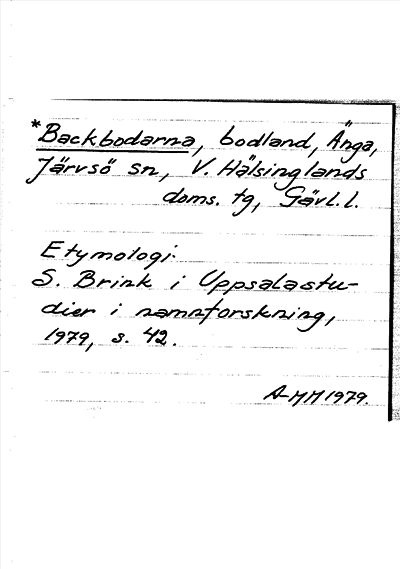 *Backbodarna, bodland, Änga,
Järvsö sn, V. Hälsinglands
doms. tg, Gävl. l.
Etymologi:
S. Brink i Uppsalastu-
dier i namnforskning,
1979, s. 42.
A-MM 1979.